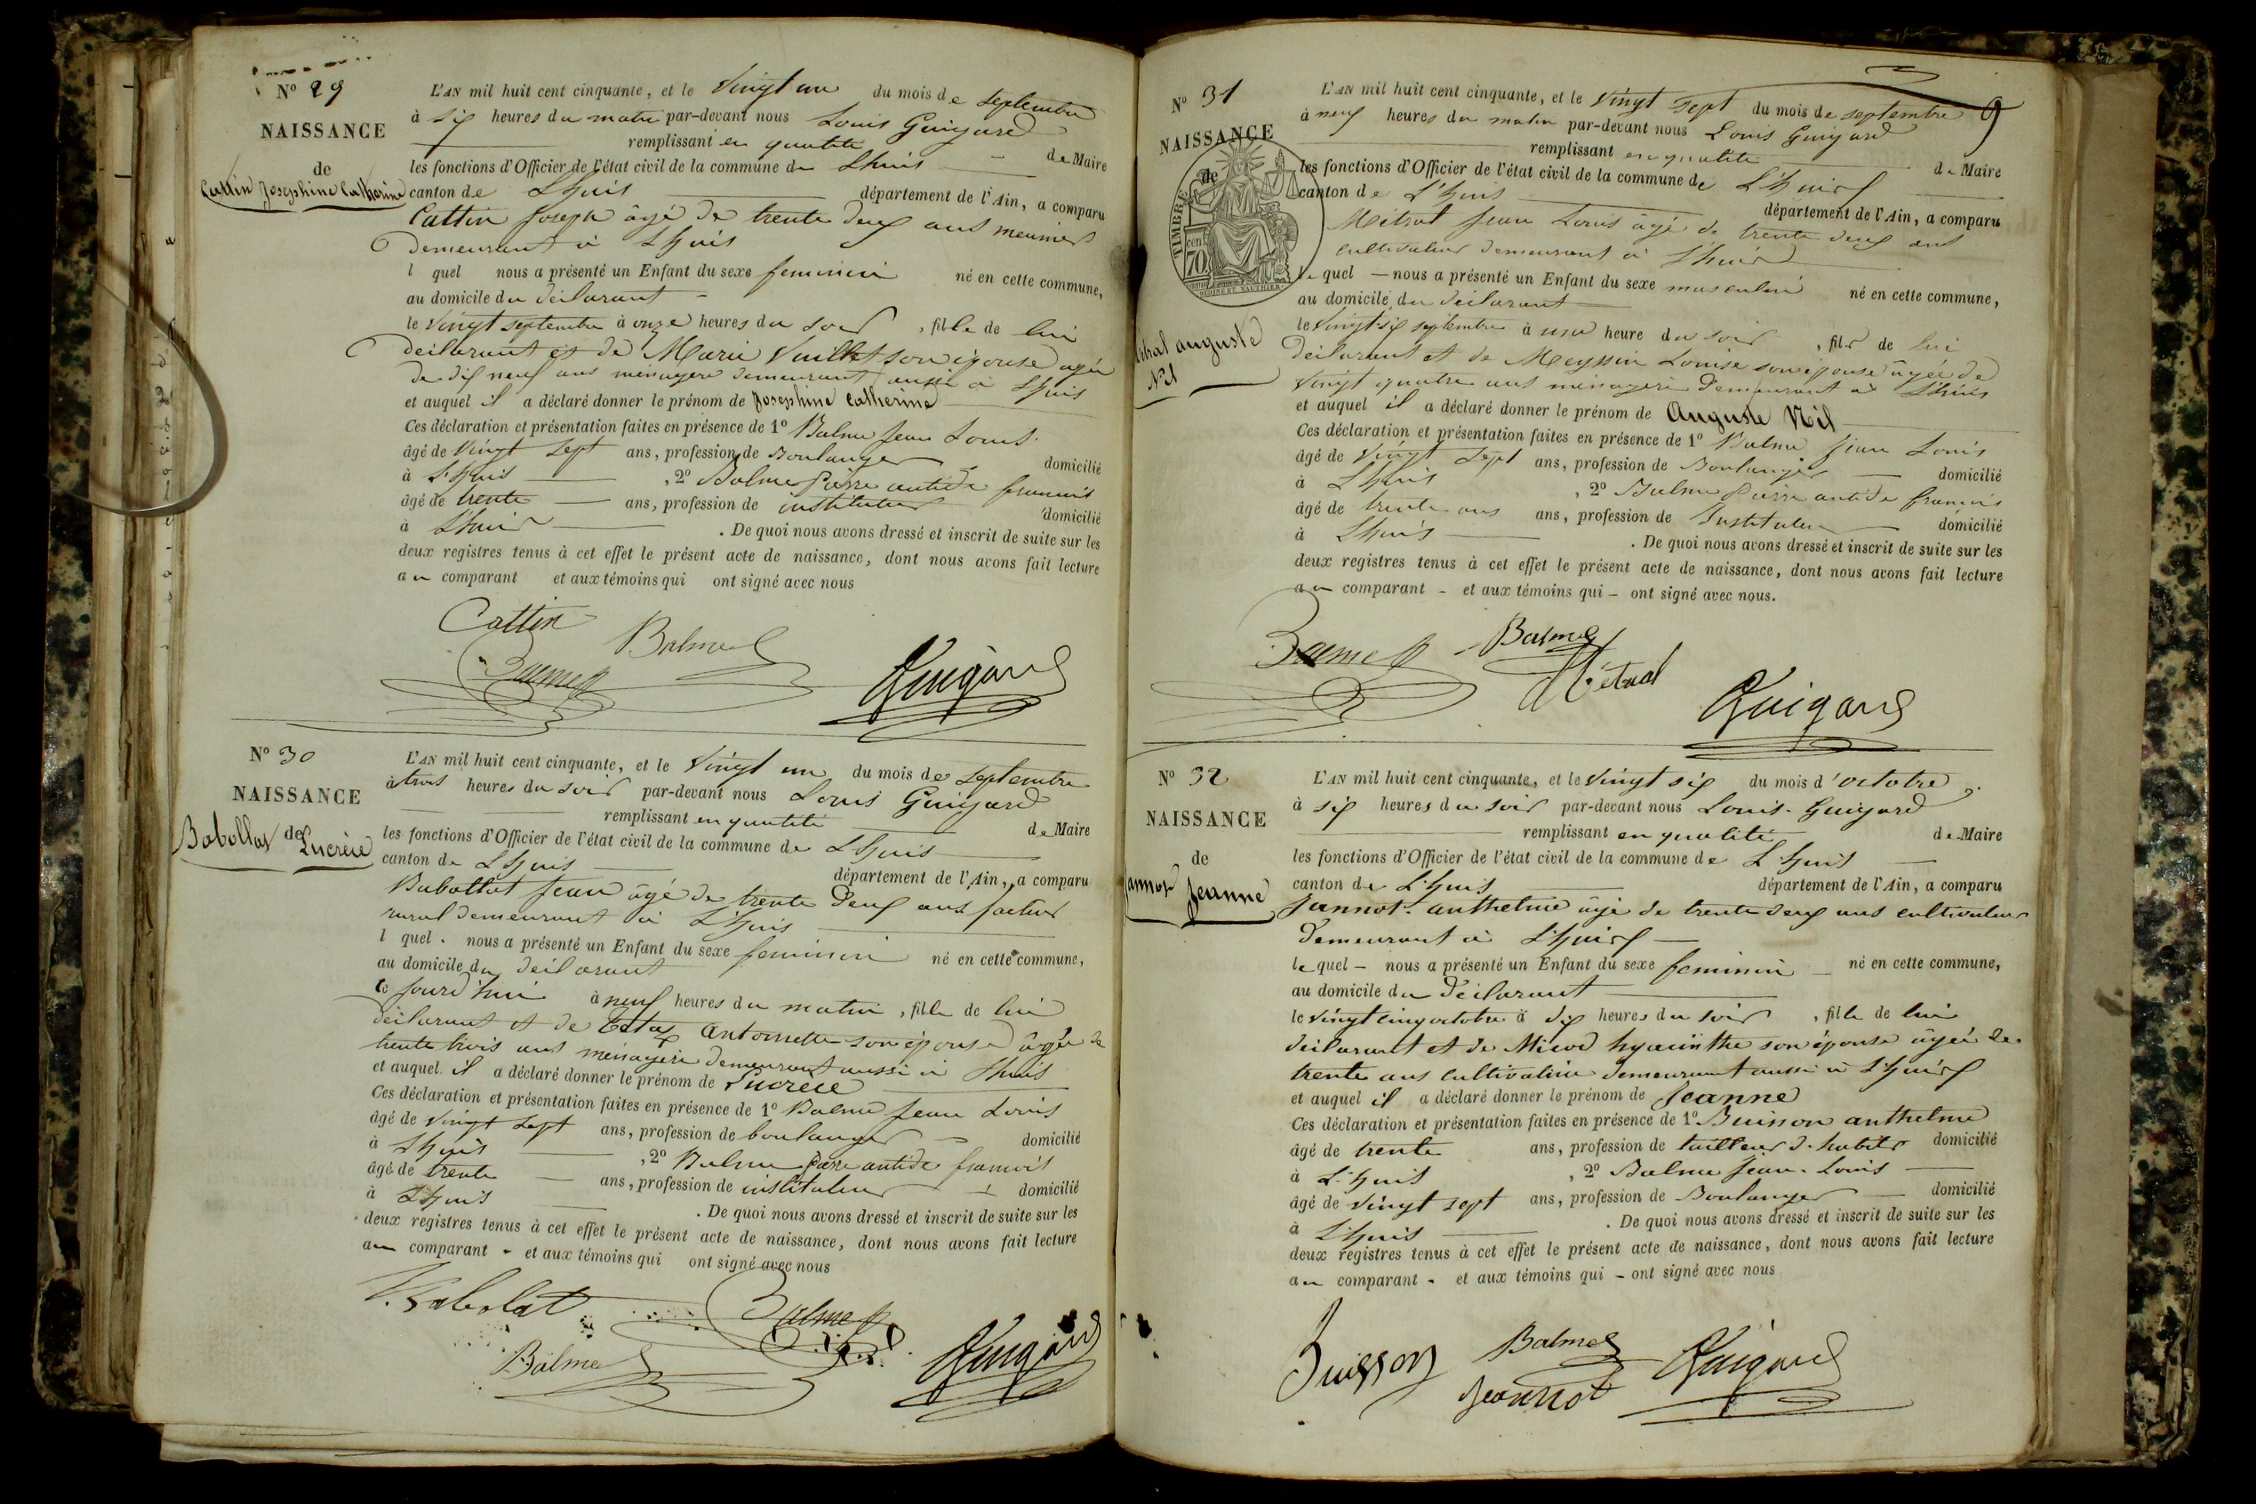 N° 29
NAISSANCE
de
Cattin Josephine Catherine
L'AN mil huit cent cinquante, et le Vingt un du mois de septembre
à six heures du matin par-devant nous Louis Guigard
remplissant en qualité de Maire
les fonctions d'Officier de l'état civil de la commune de Lhuis
canton de Lhuis département de l'Ain, a comparu
Cattin Joseph âgé de trente deux ans meunier
demeurant à Lhuis
l quel nous a présenté un Enfant du sexe feminin né en cette commune,
au domicile du déclarant
le Vingt septembre à onze heures du soir, fille de lui
déclarant et de Marie Vuillet son épouse agée
de dix neuf ans ménagère demeurant aussi à Lhuis
et auquel il a déclaré donner le prénom de Josephine Catherine
Ces déclaration et présentation faites en présence de 1° Balme Jean Louis
âgé de Vingt sept ans, profession de Boulanger domicilié
à L'huis, 2° Balme Pierre antide francois
âgé de trente ans, profession de instituteur domicilié
à L'huis. De quoi nous avons dressé et inscrit de suite sur les
deux registres tenus à cet effet le présent acte de naissance, dont nous avons fait lecture
au comparant et aux témoins qui ont signé avec nous
Cattin Balme
Balme
Guigard
N° 30
NAISSANCE
de
Babollat Lucrèce
L'AN mil huit cent cinquante, et le Vingt un du mois de septembre
à trois heures du soir par-devant nous Louis Guigard
remplissant en qualité de Maire
les fonctions d'Officier de l'état civil de la commune de Lhuis
canton de Lhuis département de l'Ain, a comparu
Babollat Jean âgé de trente deux ans facteur
rural demeurant à L'huis
l quel nous a présenté un Enfant du sexe feminin né en cette commune,
au domicile du déclarant
ce jourd'hui à neuf heures du matin, fille de lui
déclarant et de Antoinette son épouse âgée de
trente trois ans ménagère demeurant aussi à Lhuis
et auquel il a déclaré donner le prénom de Lucrèce
Ces déclaration et présentation faites en présence de 1° Balme Jean Louis
âgé de vingt sept ans, profession de boulanger domicilié
à Lhuis, 2° Balme Pierre antide francois
âgé de trente ans, profession de instituteur domicilié
à Lhuis. De quoi nous avons dressé et inscrit de suite sur les
deux registres tenus à cet effet le présent acte de naissance, dont nous avons fait lecture
au comparant et aux témoins qui ont signé avec nous
Babolat Balme
Balme Guigard
N° 31
NAISSANCE
de
TIMBRE
cent
70
auguste
Nil
L'AN mil huit cent cinquante, et le Vingt sept du mois de septembre 9
à neuf heures du matin par-devant nous Louis Guigard
remplissant en qualité de Maire
les fonctions d'Officier de l'état civil de la commune de L'huis
canton de L'huis département de l'Ain, a comparu
Métral Jean Louis âgé de trente deux ans
cultivateur demeurant à L'huis
le quel nous a présenté un Enfant du sexe masculin né en cette commune,
au domicile du déclarant
le Vingt six septembre à une heure du soir, fils de lui
déclarant et de Meyssin Louise son épouse âgée de
Vingt quatre ans ménagère demeurant à L'huis
et auquel il a déclaré donner le prénom de Auguste Nil
Ces déclaration et présentation faites en présence de 1° Balme Jean Louis
âgé de Vingt sept ans, profession de Boulanger domicilié
à Lhuis, 2° Balme Pierre antide francois
âgé de trente ans ans, profession de Instituteur domicilié
à Lhuis. De quoi nous avons dressé et inscrit de suite sur les
deux registres tenus à cet effet le présent acte de naissance, dont nous avons fait lecture
au comparant et aux témoins qui ont signé avec nous.
Balme Balme
Métral
Guigard
N° 32
NAISSANCE
de
Jannot Jeanne
L'AN mil huit cent cinquante, et le Vingt six du mois d'octobre
à six heures du soir par-devant nous Louis Guigard
remplissant en qualité de Maire
les fonctions d'Officier de l'état civil de la commune de L'huis
canton de L'huis département de l'Ain, a comparu
Jannot anthelme âgé de trente deux ans cultivateur
demeurant à L'huis
le quel nous a présenté un Enfant du sexe feminin né en cette commune,
au domicile du déclarant
le vingt cinq octobre à dix heures du soir, fille de lui
déclarant et de Micod hyacinthe son épouse âgée de
trente ans cultivatrice demeurant aussi à L'huis
et auquel il a déclaré donner le prénom de Jeanne
Ces déclaration et présentation faites en présence de 1° Buisson anthelme
âgé de trente ans, profession de tailleur d'habits domicilié
à L'huis, 2° Balme Jean Louis
âgé de vingt sept ans, profession de Boulanger domicilié
à L'huis. De quoi nous avons dressé et inscrit de suite sur les
deux registres tenus à cet effet le présent acte de naissance, dont nous avons fait lecture
au comparant et aux témoins qui ont signé avec nous
Buisson Balme Guigard
Jeannot